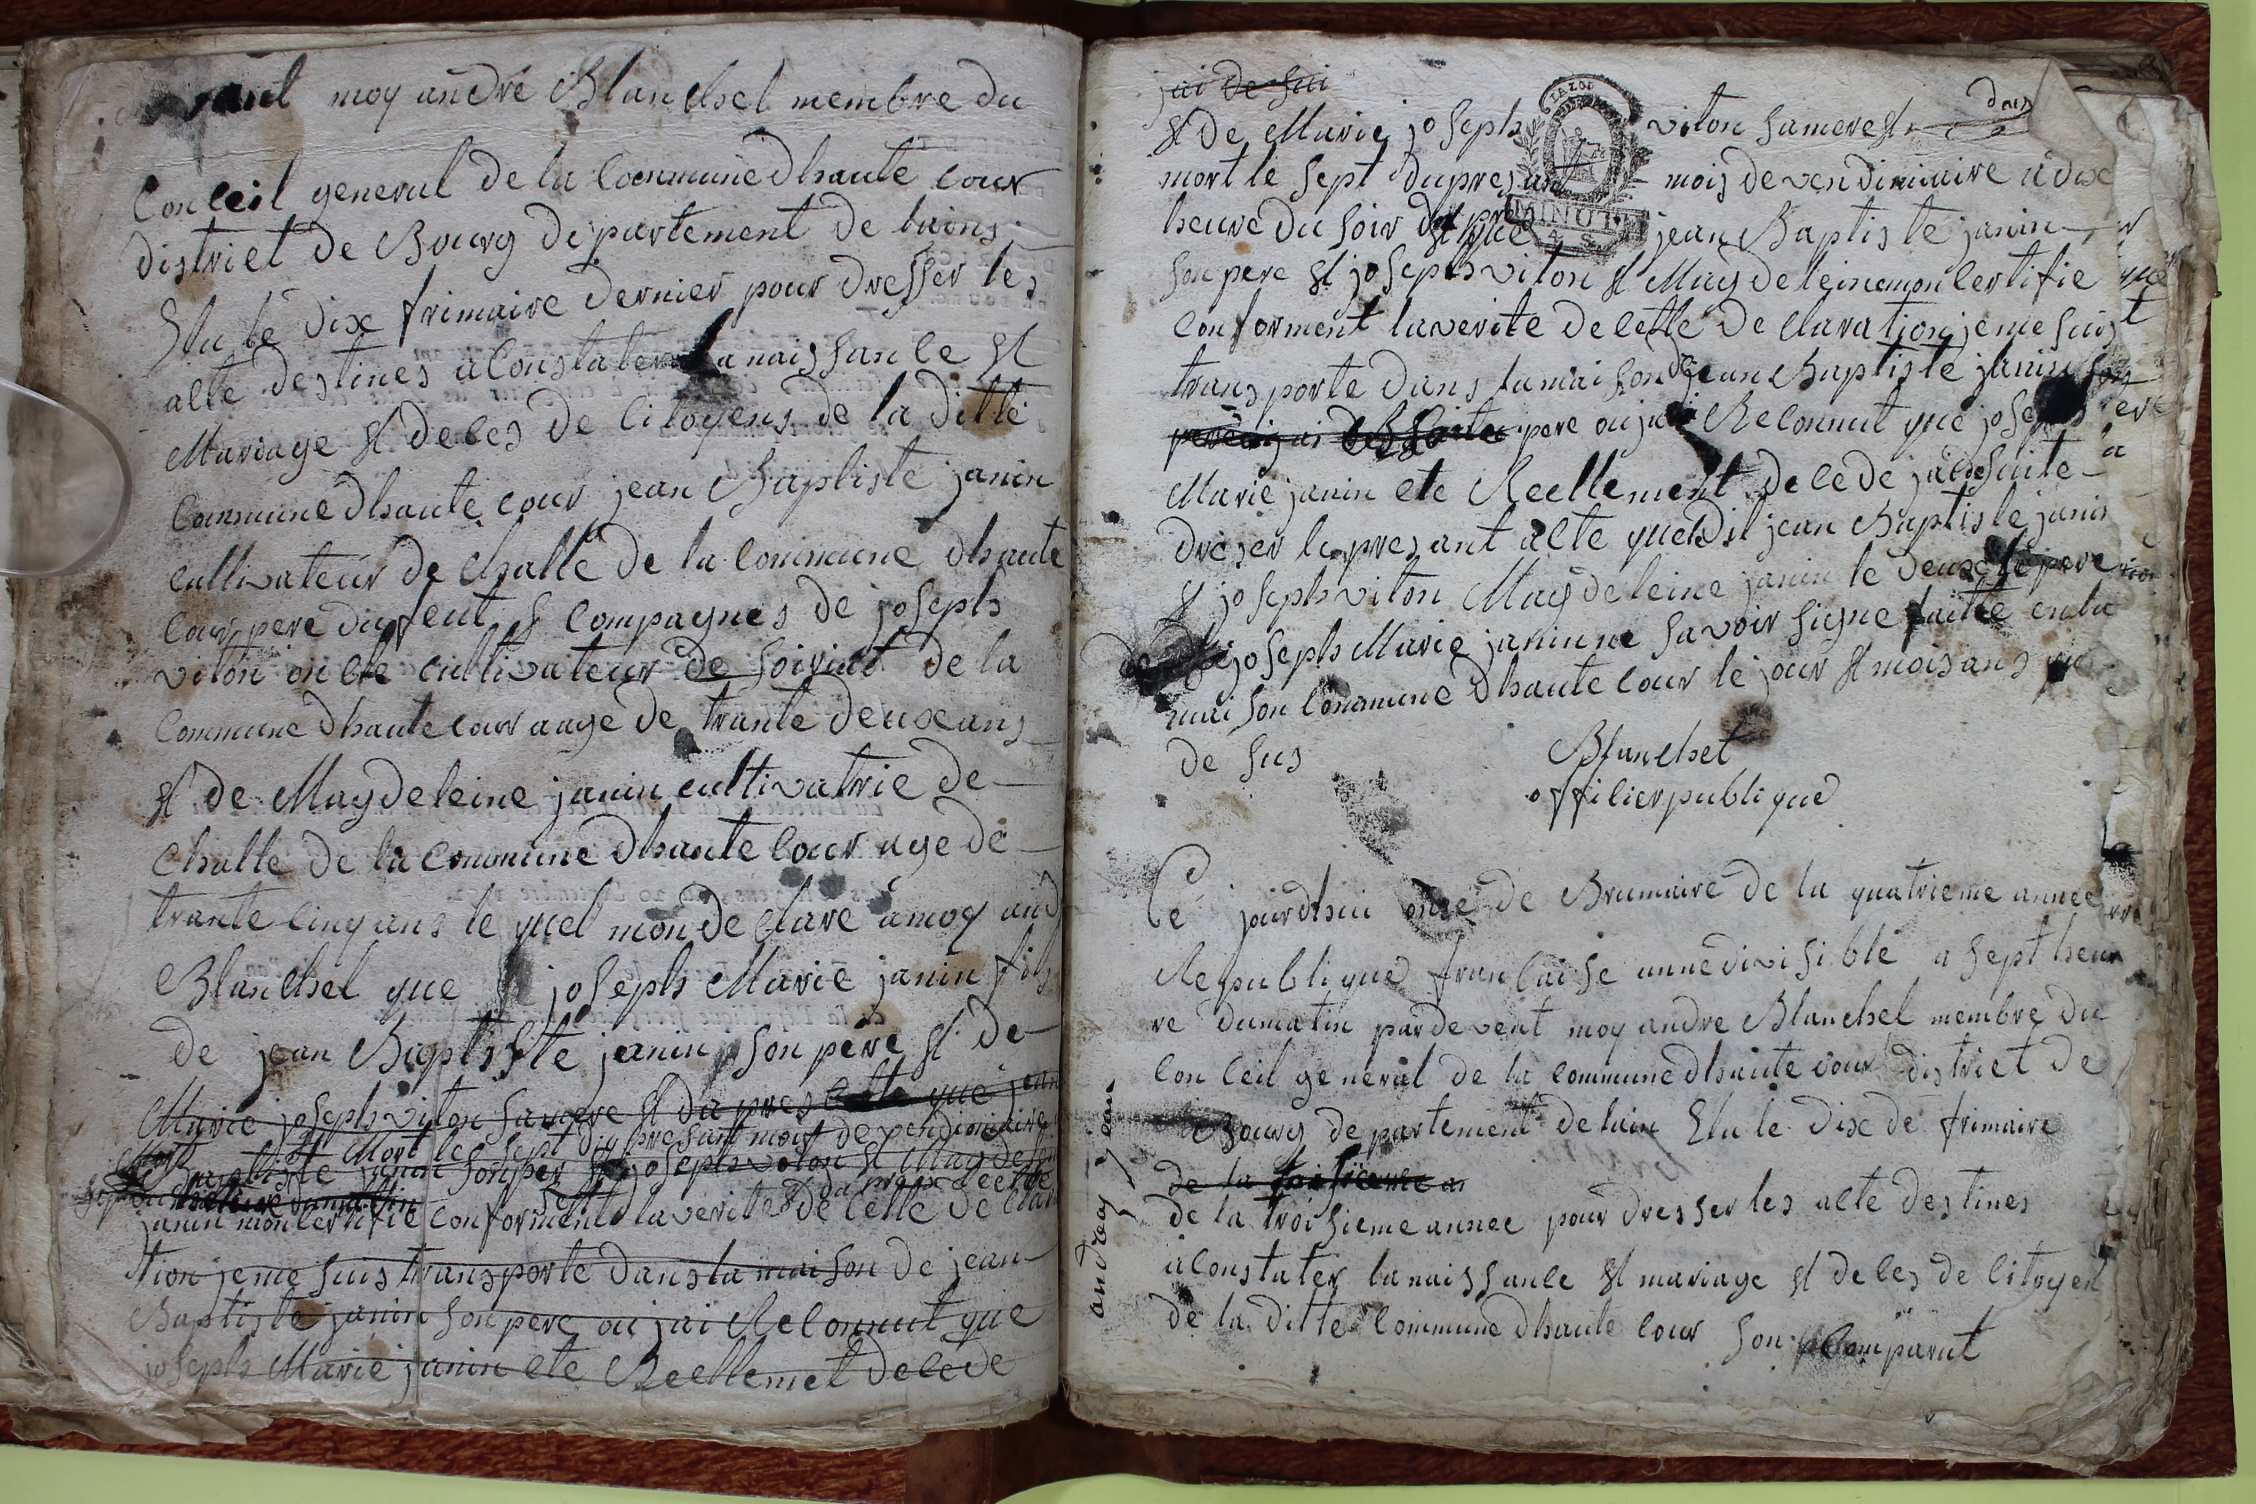 moy andre Blanchet membre du
Conceil general de la Commune dhaute cour
district de Bourg departement de lains
Elu le dix frimaire dernier pour dresser les
alte destines a Constater la naissance et
Mariage et deces de Citoyens de la ditte
Commune dhaute cour jean Baptiste janin
cultivateur de challe de la Commune dhaute
cour pere du feut et Compagnes de joseph
viton oncle cultivateur de soiriat de la
Commune dhaute cour aage de trante deux ans
et de Magdeleine janin cultivatrie de
Challe de la Commune dhaute cour age de
trante cinq ans le quel mon declare a moy and
Blanchet que joseph Marie janin fils
de jean Baptiste janin son pere et de
Marie joseph viton samere et que jean
et Mort le sept du presant mois de vendimiaire
Baptiste janin son per et joseph viton et Magdelein
janin mon certifie conforment la verite de cette declara
tion jeme suis transporte dans la maison de jean
Baptiste janin son pere ou jai Reconnut que
joseph Marie janin ete Reellemet decede
jai de sui
et de Marie joseph viton samere et
mort le sept du presant mois de vendimiaire a dix
heure du soir jean Baptiste janin
son pere et joseph viton et Magdeleine mon Certifie
conforment la verite de cette declaration jeme suis
transporte dans la maison de jean Baptiste janin son
pere ou jai Reconnut que joseph
Marie janin ete Reellement decede jai de suite
dreser le presant alte que dit jean Baptiste janin
et joseph viton Magdeleine janin le deux le pere
joseph Marie janin ne savoir signe faitte en la
maison Commune dhaute cour le jour et mois ans que
de sus
Blanchet
officier publique
Ce jourdhui onze de Brumaire de la quatrieme annee
Republique francaise unne divisible a sept heu
re du matin par devent moy andre Blanchet membre du
Conceil general de la commune dhaute cour district de
Bourg departement de lain Elu le dix de frimaire
de la troisieme an
de la troisieme annee pour dresser les alte destines
a Constater la naissance et mariage et deces de Citoyen
de la ditte Commune dhaute cour son Comparut